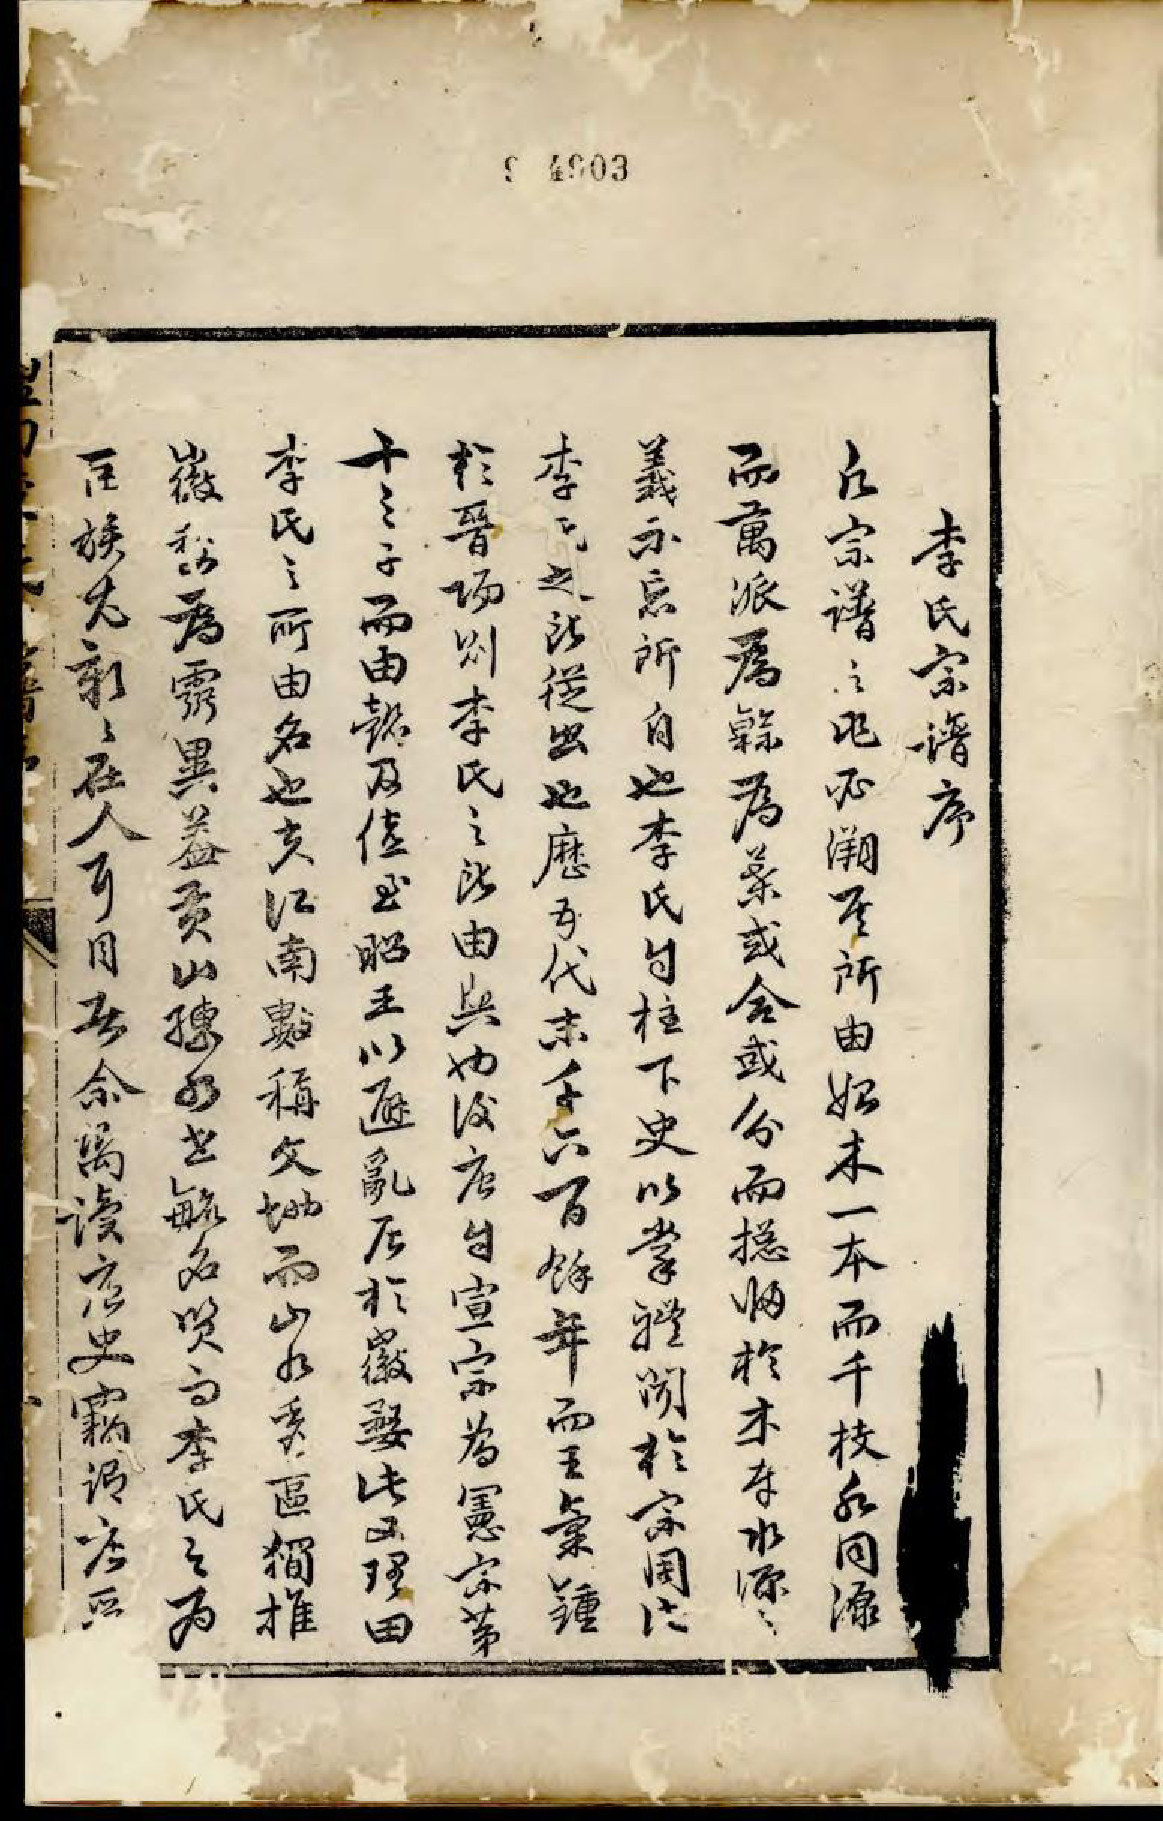 李氏宗譜序
凡宗譜之作必溯厥所由始木一本而千枝水同源
而萬派為幹為葉或合或分而總歸於木本水源之
義示忘所自也李氏自柱下史以掌禮聞於宗周此
李氏之所從出也歷五代末千六百餘年而王氣鍾
於晉陽則李氏之所由興也後唐自宣宗為憲宗第
十三子而由懿及僖至昭王以避亂居於徽婺此又理田
李氏之所由名也夫江南數稱文地而山水奧區獨推
徽婺為靈異蓋黃山 水世毓名賢而李氏之為
巨族尤彰彰在人耳目者余嘗讀唐史竊謂唐
9 4903